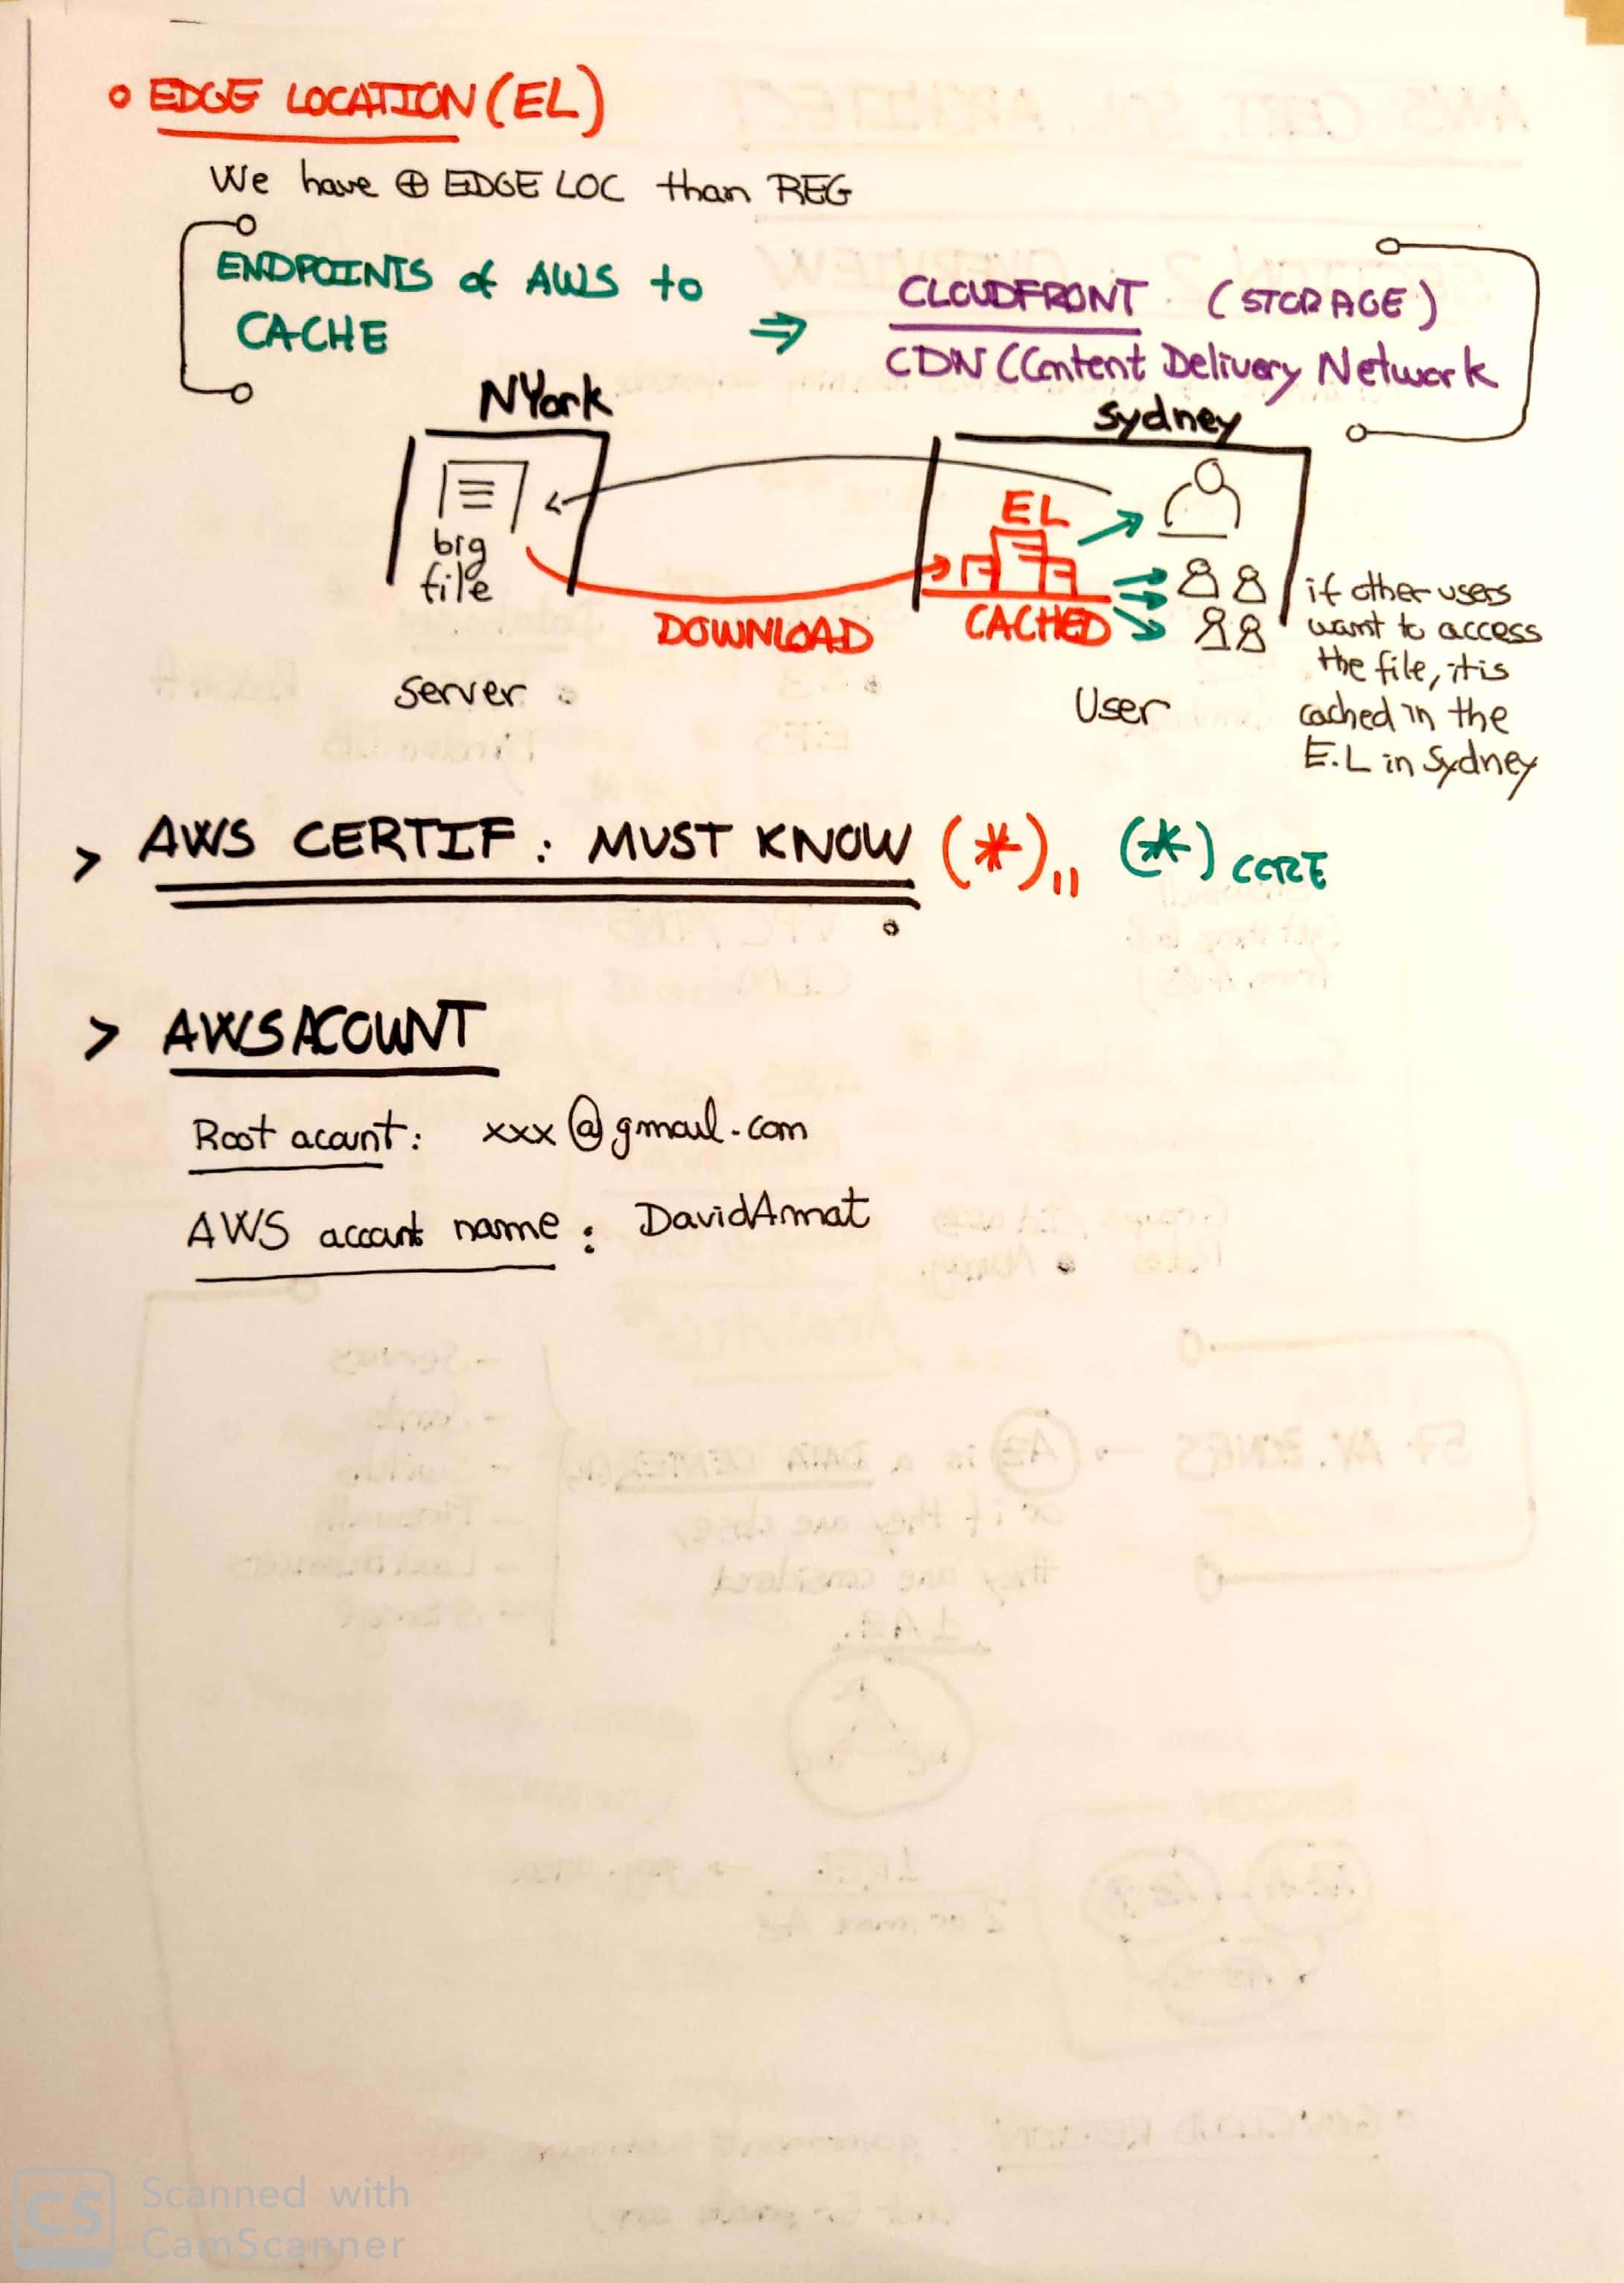 EDGE LOCATION (EL)
We have ⊕ EDGE LOC than REG
ENDPOINTS of AWS to
CACHE
⇒
CLOUDFRONT (STORAGE)
CDN (Content Delivery Network
NYork
Sydney
big
file
EL
CACHED
DOWNLOAD
Server
User
if other users
want to access
the file, it is
cached in the
E.L in Sydney
> AWS CERTIF: MUST KNOW (*),, (*) CORE
> AWS ACOUNT
Root acount: xxx@gmail.com
AWS account name: DavidAmat
CS
Scanned with
CamScanner